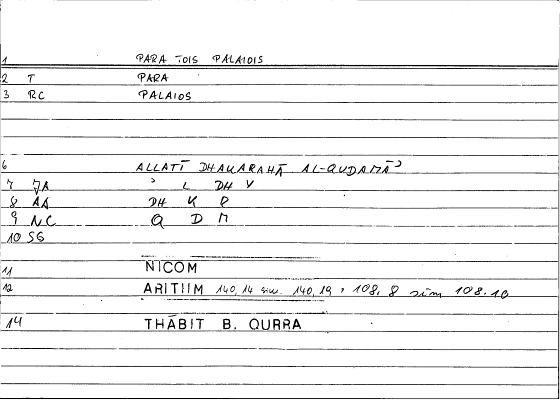 1 PARA TOIS PALAIOIS
2 T PARA
3 RC PALAIOS
6 ALLATĪ DHAKARAHĀ AL-QUDAMĀʾ
7 JA ʾ L DH Y
8 AA DH K R
9 NC Q D M
10 SG
11 NICOM
12 ARITIIM 140,14 sim. 140,19 , 108,8 sim 108.10
14 THĀBIT B. QURRA